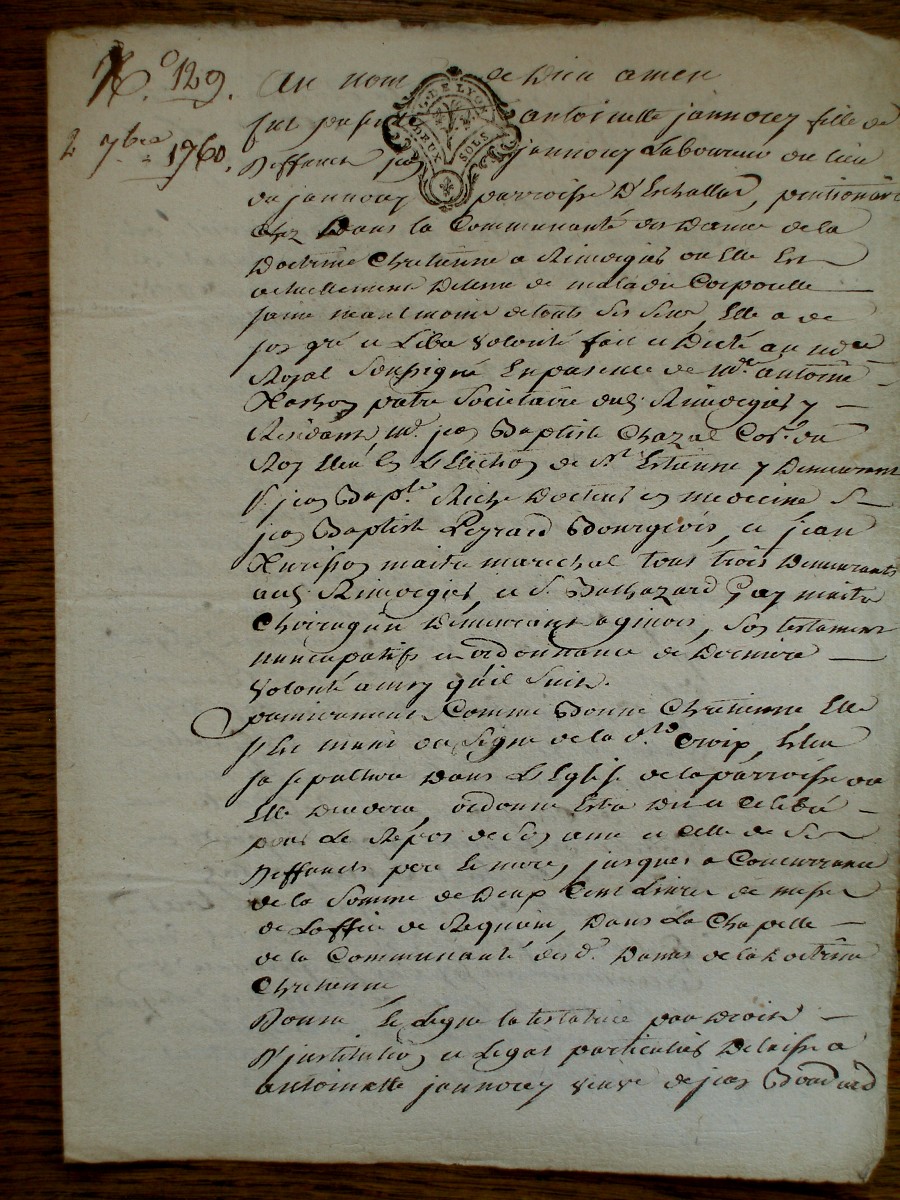 N.o 129.
2 7bre 1760.
G. DE LYON
DEUX SOLS
Au nom de Dieu amen
fut presente antoinette jannorey fille de
Deffunct jean jannorey Laboureur du lieu
du jannorey parroisse D'Eschallas, pentionaire
chez Dans la Communauté des Dames de la
Doctrine Chretienne a Rivedegiés ou Elle Est
actuellement Detenue de maladie Corporelle
saine neanlmoins de touts ses sens, Elle a de
son gré et Libre volonté fait et Dicté au no.re
Royal Soussigné En presence de m.re antoine
pretre Societaire aud. Rivedegiés y
Residant, m.r jean Baptiste Chazal Con.er du
Roy Eleu En L'Election de St Estienne y Demeurant
Sr jean Bapte. Riche Docteur en medecine Sr
jean Baptiste Peyrard Bourgeois, et jean
maitre marechal tous trois Demeurants
aud. Rivedegiés, et Sr. Balthazard Gay maitre
Chirurgien Demeurant a givors, Son testament
nuncupatif et ordonnance de Derniere
volonté ainsy qu'il suit.
premierement Comme Bonne Chretienne Elle
s'est munie du Signe de la Ste Croix, Esleu
sa sepulture Dans L'Eglise de la parroisse ou
Elle Decedera, ordonne Estre Dit et Celebré
pour Le Repos de Son ame et Celle de Ses
Deffuncts pere Et mere, jusques a Concurrance
de la Somme de Deux Cent Livres de messes
de Loffice de Requiem, Dans La Chapelle
de la Communauté desd. Dames de la Doctrine
Chretienne
Donne Et Legue la testatrice par Droit
D'institution et Legat particulier Delaisse a
antoinette jannorey veuve de jean Bouchard